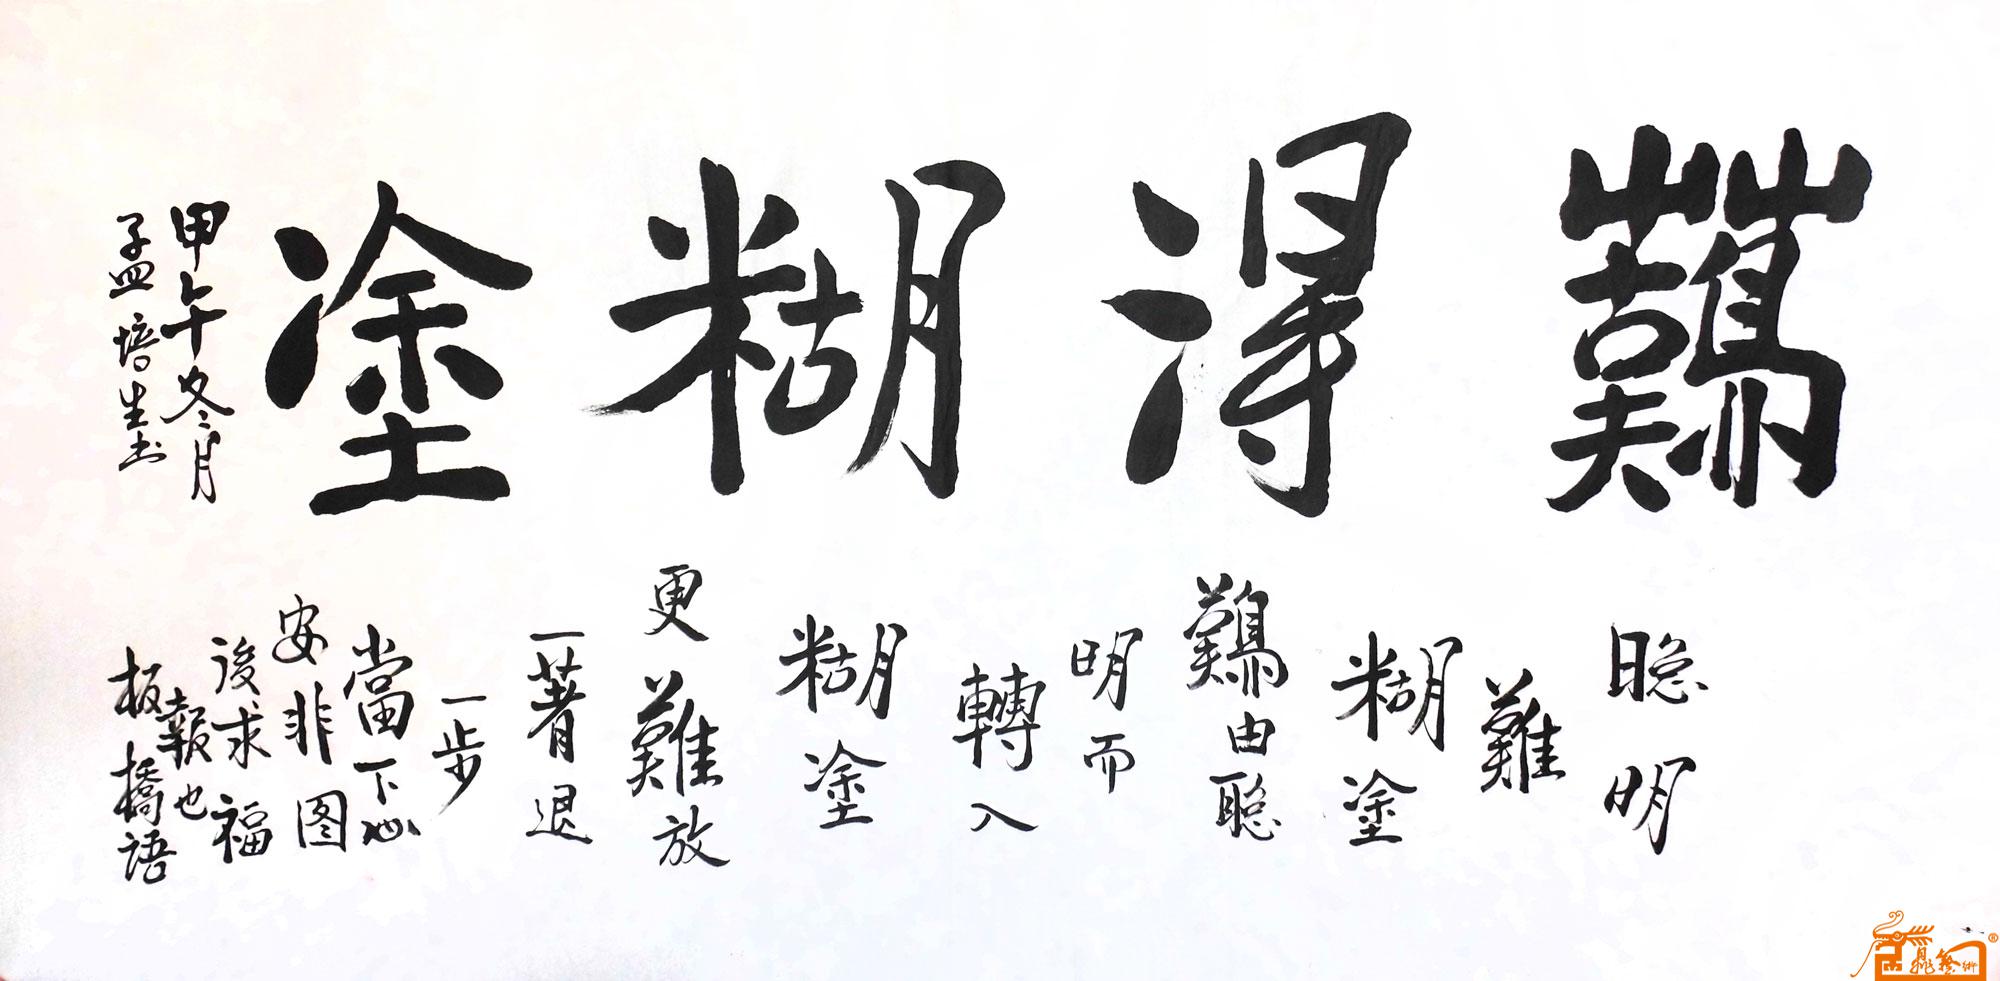 難得糊塗
聪明
難
糊塗
難由聰
明而
轉入
糊塗
更難放
一著退
一步
當下心
安非图
後求福
報也
板橋语
甲午冬月
孟培生书